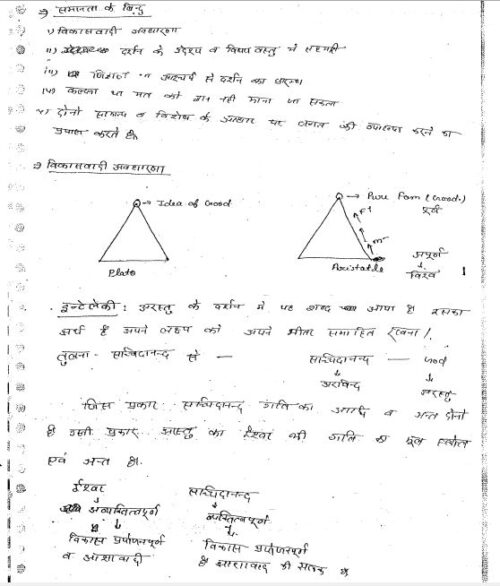 समानता के बिन्दु
i) विकासवादी अवधारणा
ii) दर्शन के उद्देश्य व विषय वस्तु में सहमति
iii) जिज्ञासा से दर्शन का प्रारम्भ
iv) कल्पना या मत को ज्ञान नही माना जा सकता
v) दोनो सामान्य व विशेष के आधार पर जगत की व्याख्या करने का
प्रयास करते है।
विकासवादी अवधारणा
Idea of Good
Plato
Pure Form (Good)
पूर्ण
F↑
m
Aristotle
अपूर्ण
↓
विश्व
इन्टेलेकी : अरस्तु के दर्शन में यह शब्द आया है इसका
अर्थ है अपने लक्ष्य को अपने भीतर समाहित रखना।
तुलना - सच्चिदानन्द से —
सच्चिदानन्द — God
↓ ↓
अरविन्द अरस्तु
जिस प्रकार सच्चिदानन्द गति का आदि व अन्त दोनो
है उसी प्रकार अरस्तु का ईश्वर भी गति का मूल स्त्रोत
एवं अन्त है।
ईश्वर सच्चिदानन्द
↓ ↓
अव्यक्तित्वपूर्ण व्यक्तित्वपूर्ण
↓ ↓
विकास प्रयोजनपूर्ण विकास प्रयोजनपूर्ण
व आशावादी है आशावाद की